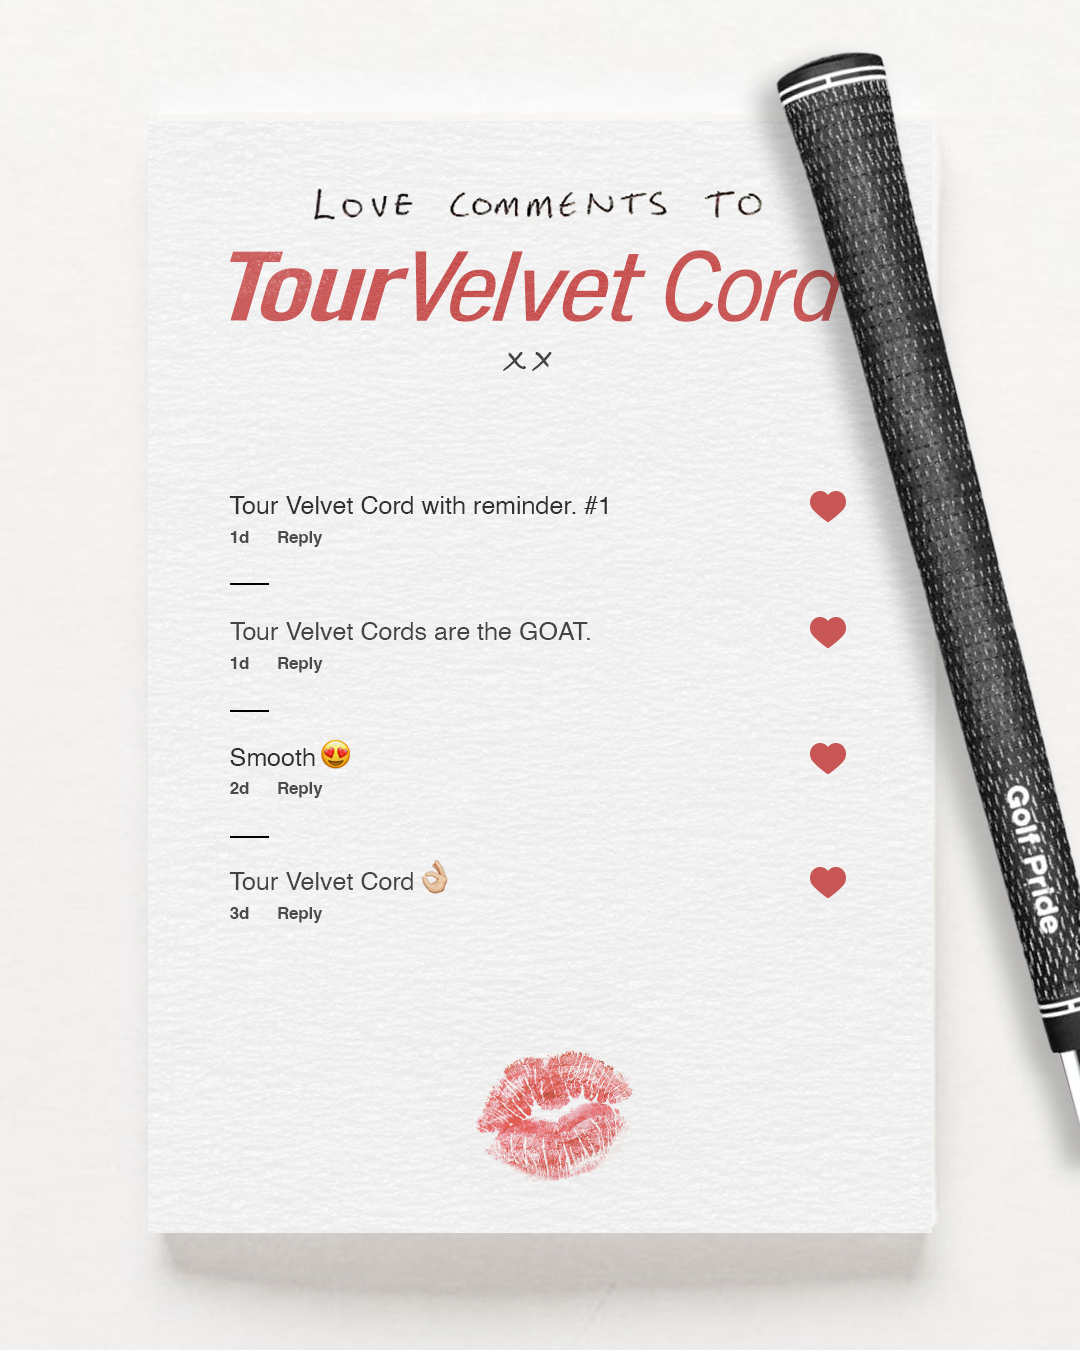 LOVE COMMENTS TO
TourVelvet Cord
xx
Tour Velvet Cord with reminder. #1
1d Reply
Tour Velvet Cords are the GOAT.
1d Reply
Smooth 😍
2d Reply
Tour Velvet Cord 👌🏼
3d Reply
Golf Pride